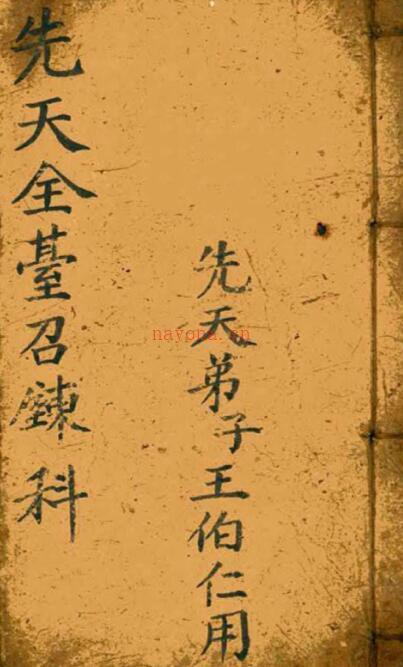 先天全臺召鍊科
先天弟子王伯仁用
nayona.cn